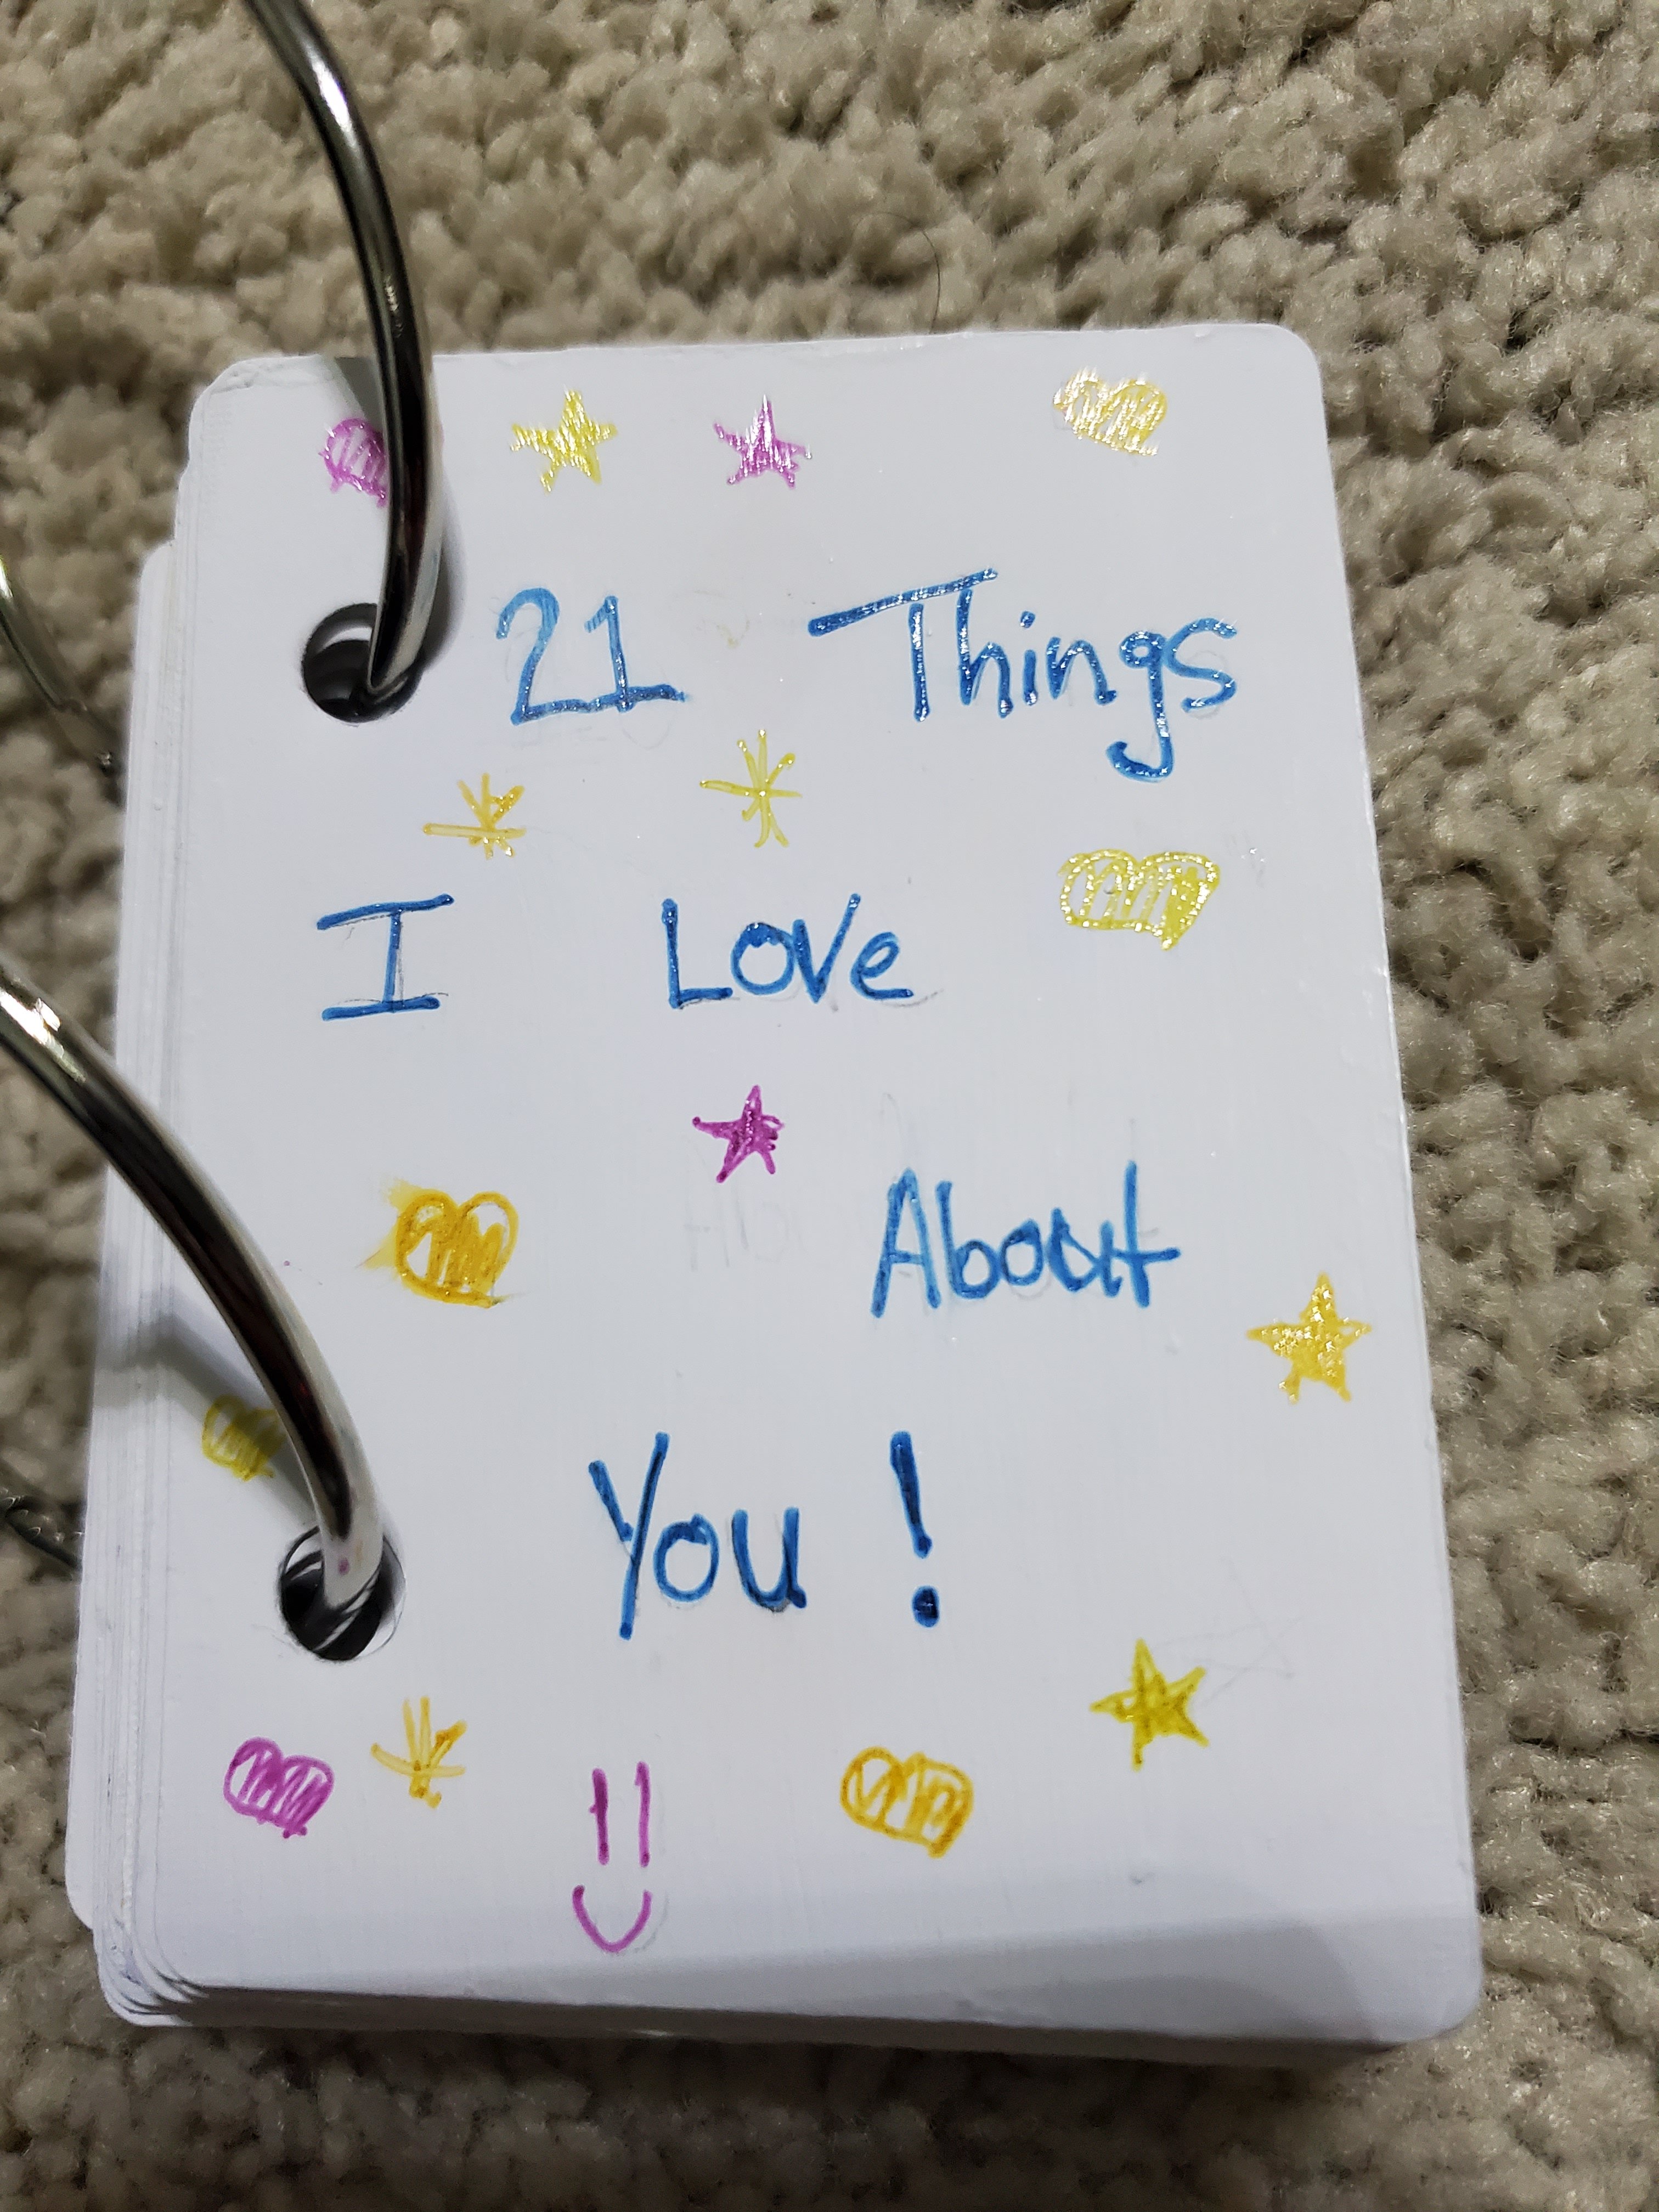 21 Things
I Love
About
You!